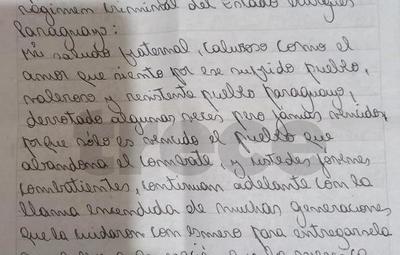 régimen criminal del Estado burgués
Paraguayo:
Mi saludo fraternal, caluroso como el
amor que siento por ese sufrido pueblo,
valeroso y resistente pueblo paraguayo,
derrotado algunas veces pero jamás vencido,
porque sólo es vencido el pueblo que
abandona el combate y ustedes jóvenes
combatientes, continuam adelante com la
llama encendida de muchas generaciones
que la cuidaron con esmero para entregarsela